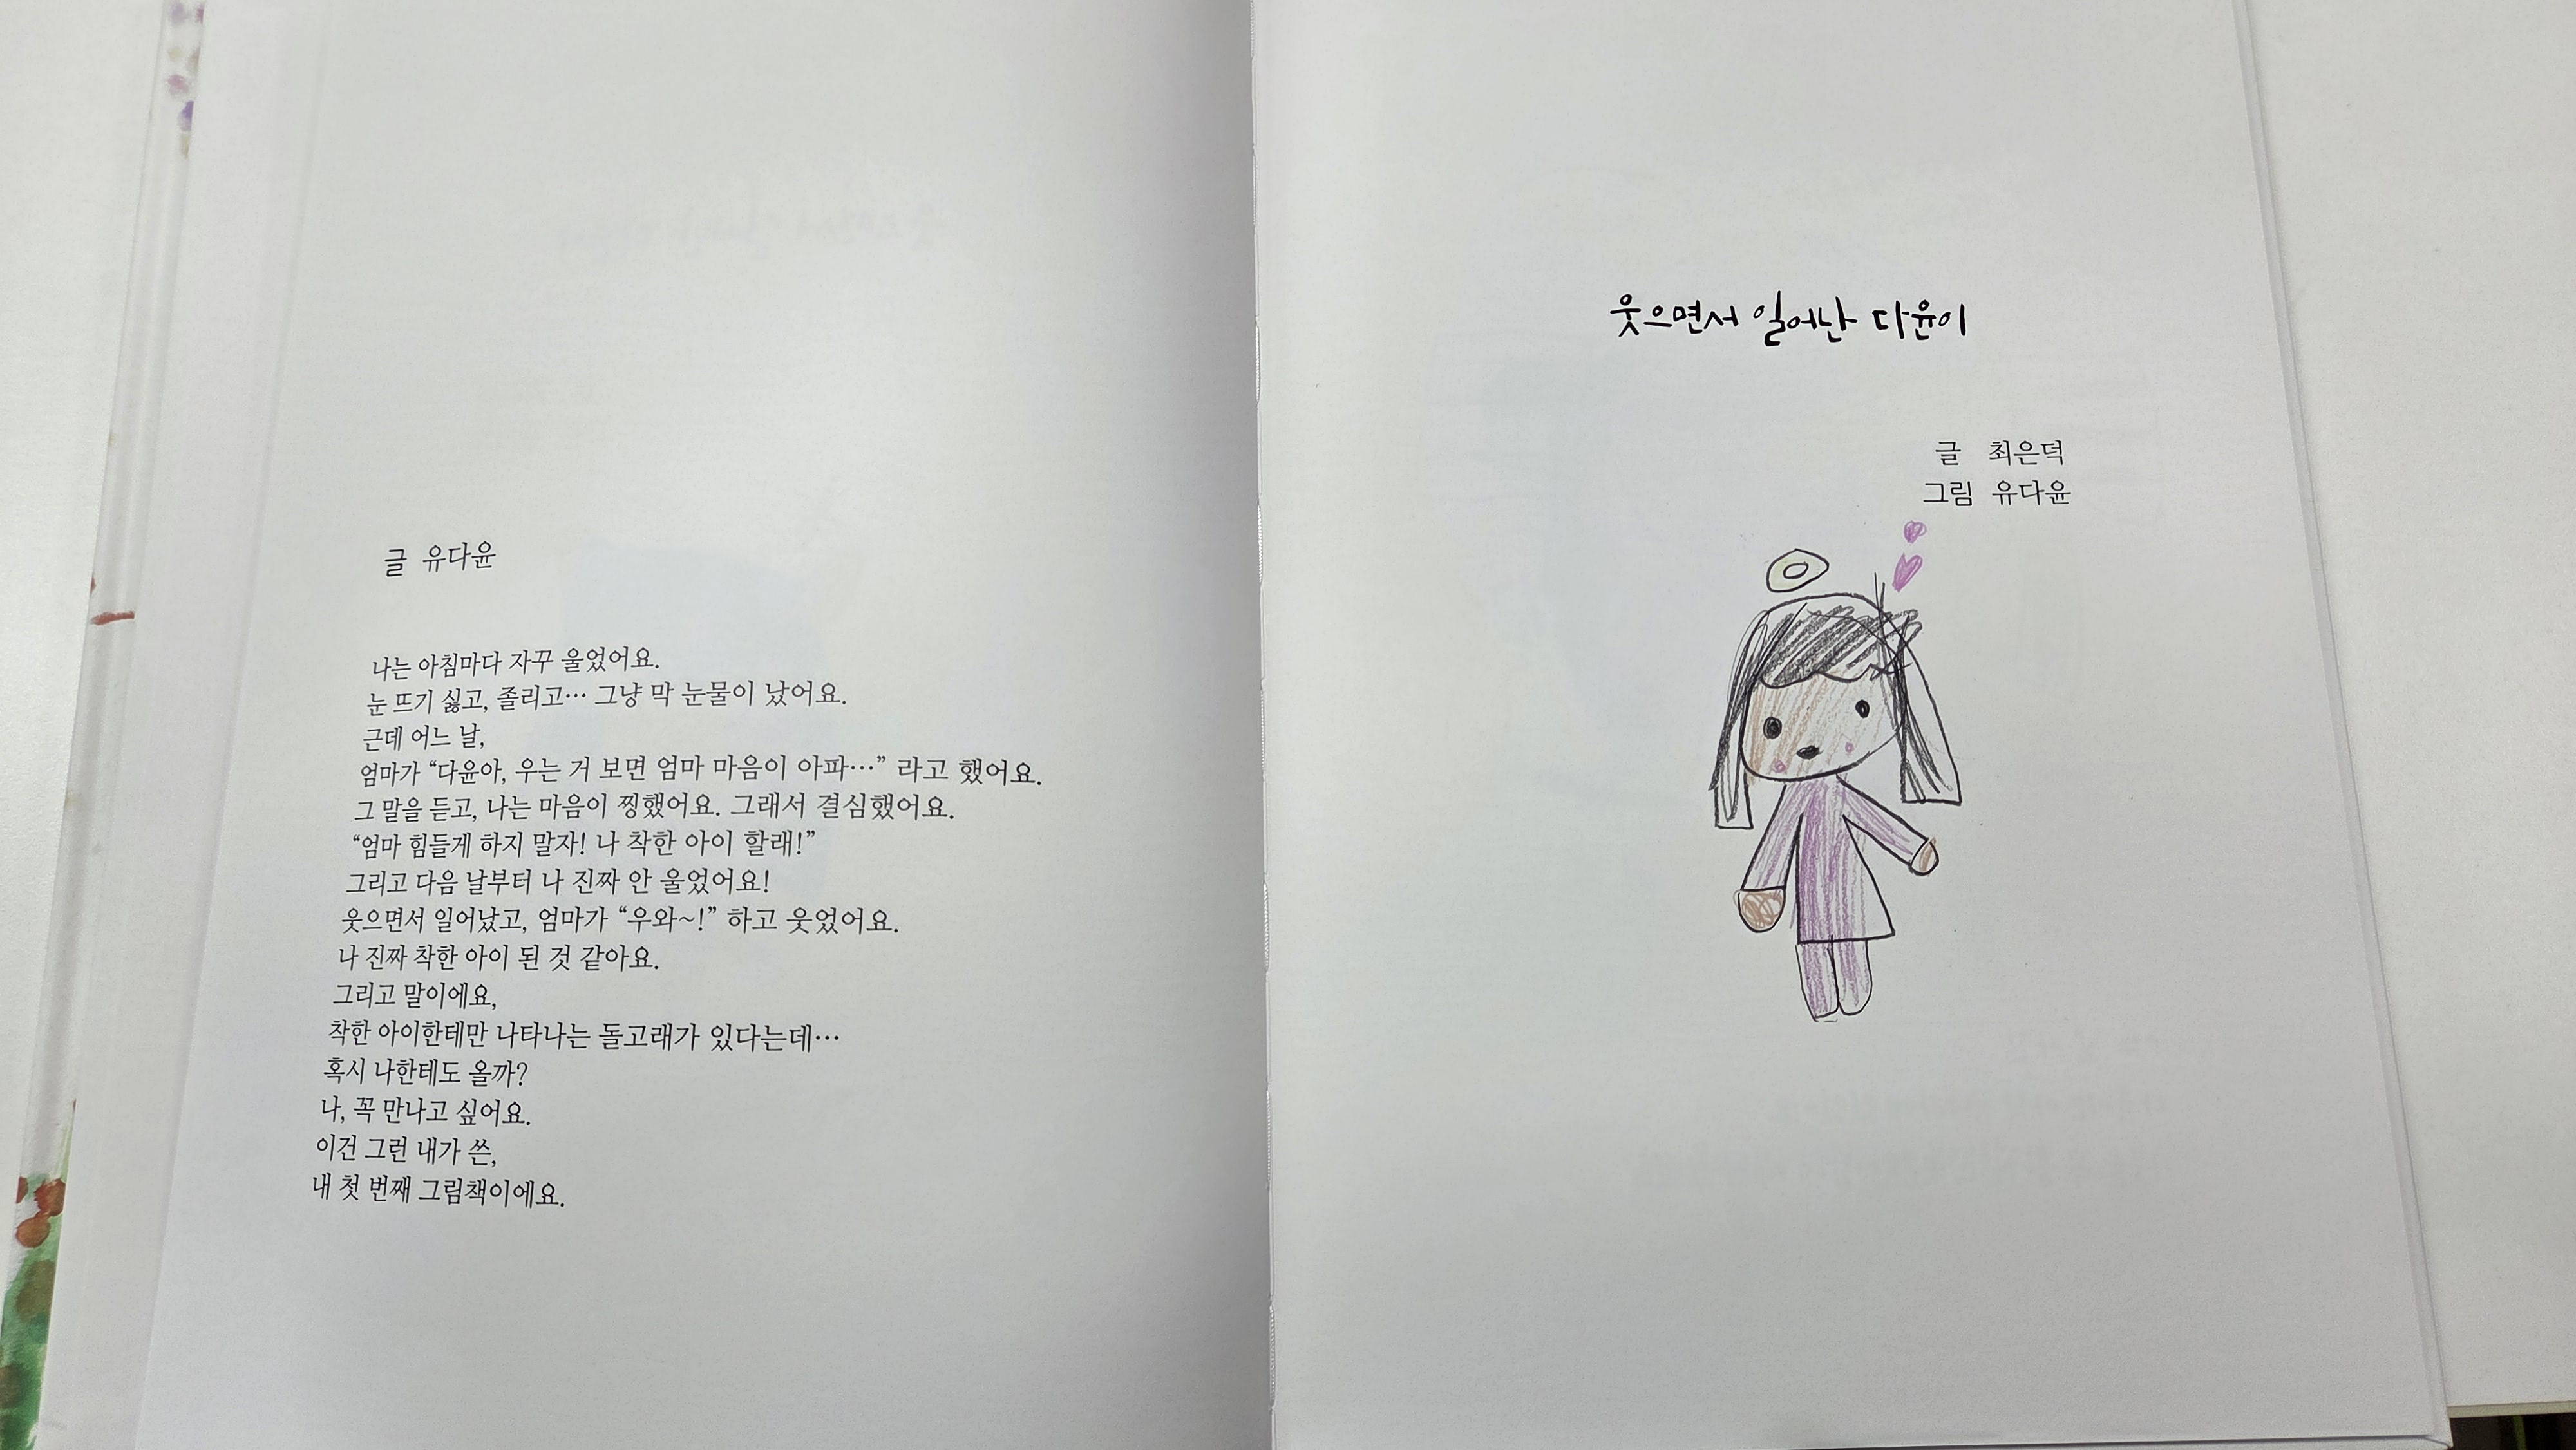 글 유다윤
나는 아침마다 자꾸 울었어요.
눈 뜨기 싫고, 졸리고… 그냥 막 눈물이 났어요.
근데 어느 날,
엄마가 “다윤아, 우는 거 보면 엄마 마음이 아파…” 라고 했어요.
그 말을 듣고, 나는 마음이 찡했어요. 그래서 결심했어요.
“엄마 힘들게 하지 말자! 나 착한 아이 할래!”
그리고 다음 날부터 나 진짜 안 울었어요!
웃으면서 일어났고, 엄마가 “우와~!” 하고 웃었어요.
나 진짜 착한 아이 된 것 같아요.
그리고 말이에요,
착한 아이한테만 나타나는 돌고래가 있다는데…
혹시 나한테도 올까?
나, 꼭 만나고 싶어요.
이건 그런 내가 쓴,
내 첫 번째 그림책이에요.
웃으면서 일어난 다윤이
글 최은덕
그림 유다윤